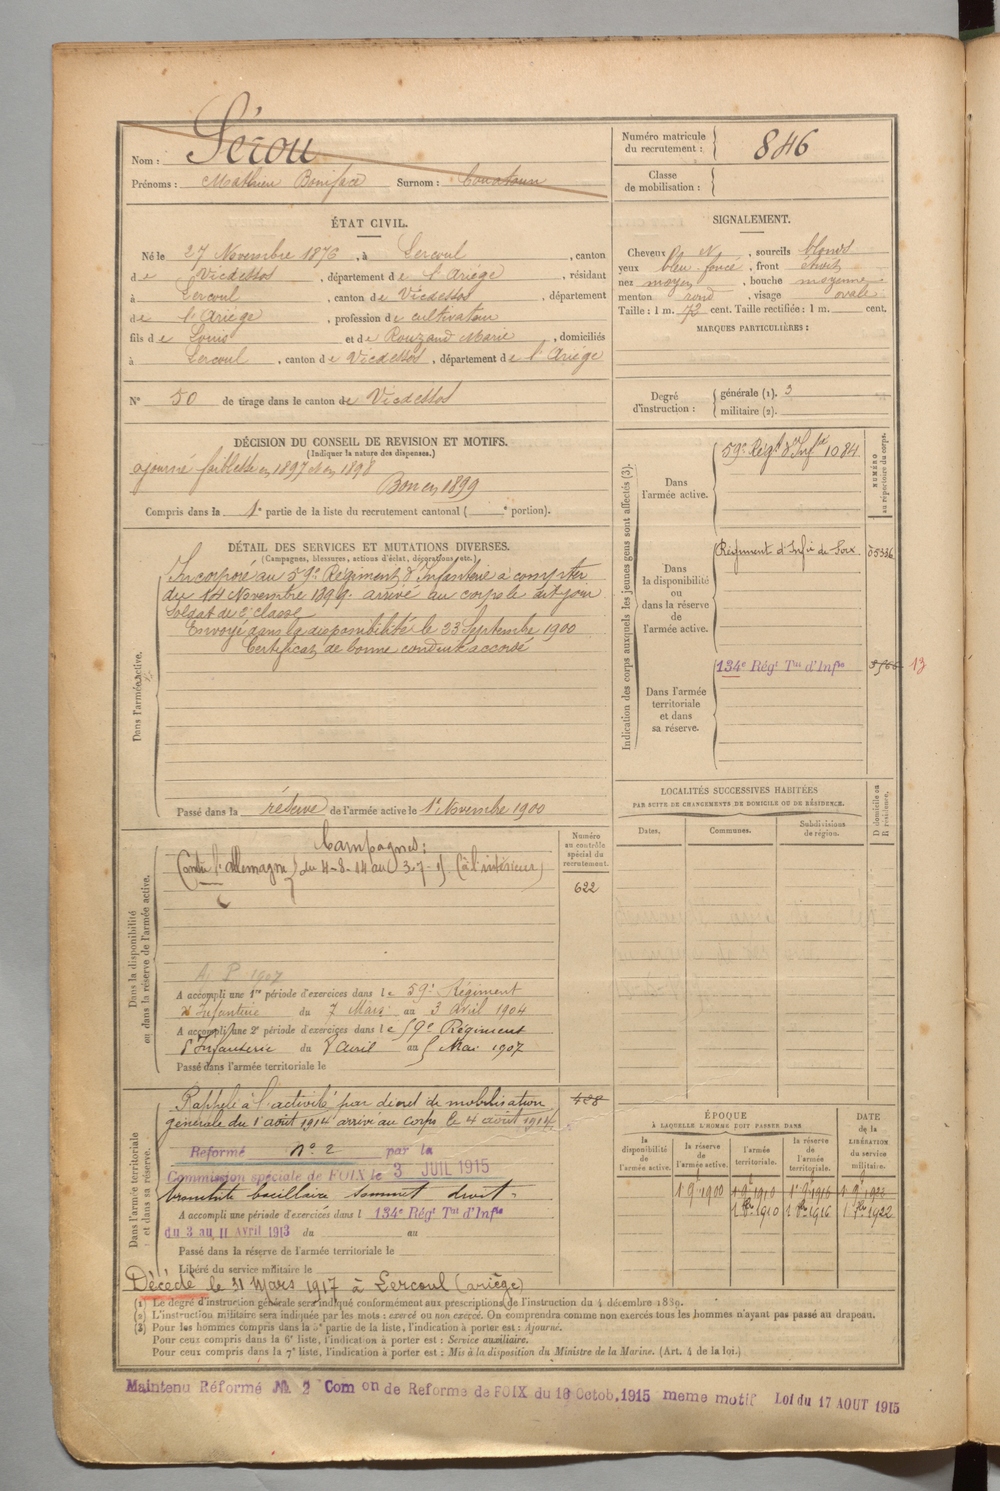 Nom : Sérou
Prénoms : Mathieu Boniface Surnom :
Numéro matricule du recrutement : 846
Classe de mobilisation :
ÉTAT CIVIL.
Né le 27 Novembre 1876, à Lercoul, canton
de Vicdessos, département de l'Ariège, résidant
à Lercoul, canton de Vicdessos, département
de l'Ariège, profession de cultivateur
fils de Louis et de Rouzaud Marie, domiciliés
à Lercoul, canton de Vicdessos, département de l'Ariège
N° 50 de tirage dans le canton de Vicdessos
SIGNALEMENT.
Cheveux Ch N, sourcils blonds
yeux bleu foncé, front étroit
nez moyen, bouche moyenne
menton rond, visage ovale
Taille : 1 m. 72 cent. Taille rectifiée : 1 m. cent.
MARQUES PARTICULIÈRES :
Degré d'instruction : générale (1). 3
militaire (2).
DÉCISION DU CONSEIL DE REVISION ET MOTIFS.
(Indiquer la nature des dispenses.)
ajourné faiblesse en 1897 et en 1898
Bon en 1899
Compris dans la 1e partie de la liste du recrutement cantonal ( e portion).
DÉTAIL DES SERVICES ET MUTATIONS DIVERSES.
(Campagnes, blessures, actions d'éclat, décorations, etc.)
Dans l'armée active.
Incorporé au 59e Régiment d'Infanterie à compter
du 14 Novembre 1899. arrivé au corps le dit jour
Soldat de 2e classe
Envoyé dans la disponibilité le 23 Septembre 1900
Certificat de bonne conduite accordé
Passé dans la réserve de l'armée active le 1er Novembre 1900
Indication des corps auxquels les jeunes gens sont affectés (3).
NUMÉRO au répertoire du corps.
Dans l'armée active.
59e Régt d'Infie 1084
Dans la disponibilité ou dans la réserve de l'armée active.
Régiment d'Infie de Foix 05336
Dans l'armée territoriale et dans sa réserve.
134e Régt Tial d'Infie 13
LOCALITÉS SUCCESSIVES HABITÉES
PAR SUITE DE CHANGEMENTS DE DOMICILE OU DE RÉSIDENCE.
Dates. Communes. Subdivisions de région. D domicile ou R résidence.
Dans la disponibilité ou dans la réserve de l'armée active.
Numéro au contrôle spécial du recrutement.
622
Campagnes :
Contre l'Allemagne du 4-8-14 au 3-7-15 (à l'intérieur)
A P 1907
A accompli une 1re période d'exercices dans le 59e Régiment
d'Infanterie du 7 Mars au 3 avril 1904
A accompli une 2e période d'exercices dans le 59e Régiment
d'Infanterie du 8 Avril au 5 Mai 1907
Passé dans l'armée territoriale le
Dans l'armée territoriale et dans sa réserve.
Rappelé à l'activité par décret de mobilisation 488
générale du 1er août 1914 arrivé au corps le 4 août 1914
Reformé n° 2 par la
Commission spéciale de FOIX le 3 JUIL 1915
bronchite bacillaire sommet droit.
A accompli une période d'exercices dans l 134e Régt Tial d'Infie
du 3 au 11 Avril 1913 du au
Passé dans la réserve de l'armée territoriale le
Libéré du service militaire le
Décédé le 31 Mars 1917 à Lercoul (ariège)
ÉPOQUE
À LAQUELLE L'HOMME DOIT PASSER DANS
la disponibilité de l'armée active. la réserve de l'armée active. l'armée territoriale. la réserve de l'armée territoriale.
DATE de la LIBÉRATION du service militaire.
1 9e 1900 1 9e 1910 1 9e 1916 1 9e 1922
1 8bre 1910 1 8bre 1916 1 8bre 1922
(1) Le degré d'instruction générale sera indiqué conformément aux prescriptions de l'instruction du 4 décembre 1889.
(2) L'instruction militaire sera indiquée par les mots : exercé ou non exercé. On comprendra comme non exercés tous les hommes n'ayant pas passé au drapeau.
(3) Pour les hommes compris dans la 5e partie de la liste, l'indication à porter est : Ajourné.
Pour ceux compris dans la 6e liste, l'indication à porter est : Service auxiliaire.
Pour ceux compris dans la 7e liste, l'indication à porter est : Mis à la disposition du Ministre de la Marine. (Art. 4 de la loi.)
Maintenu Réformé N° 2 Com on de Reforme de FOIX du 18 Octob, 1915 meme motif Loi du 17 AOUT 1915